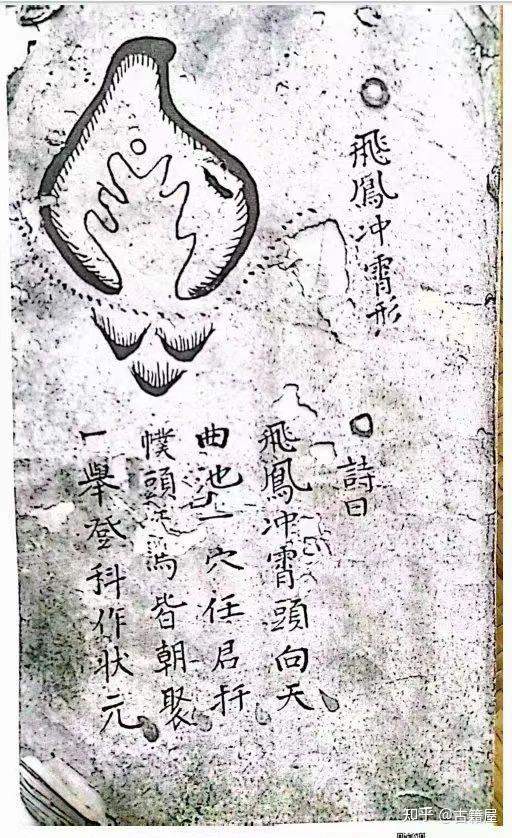 飛鳳冲霄形
詩曰
飛鳳冲霄頭向天
曲池一穴任君扦
幞頭 皆朝聚
一舉登科作狀元
知乎 @古籍屋